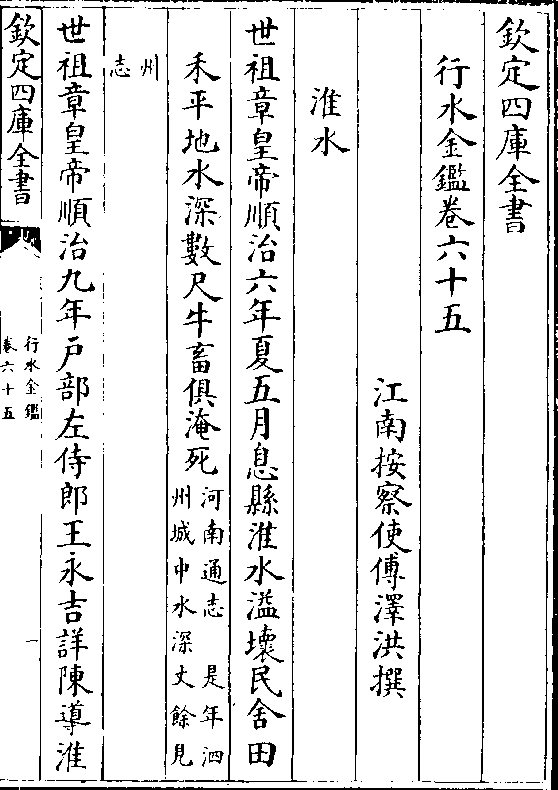 欽定四庫全書
行水金鑑卷六十五
江南按察使傅澤洪撰
淮水
世祖章皇帝順治六年夏五月息縣淮水溢壞民舍田
禾平地水深數尺牛畜俱淹死河南通志　是年泗
州城中水深丈餘見
州
志
世祖章皇帝順治九年戸部左侍郎王永吉詳陳導淮
欽定四庫全書
行水金鑑
卷六十五
一